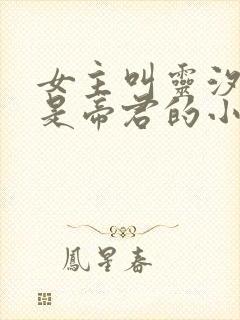 女主叫靈汐
是帝君的小
鳳星春